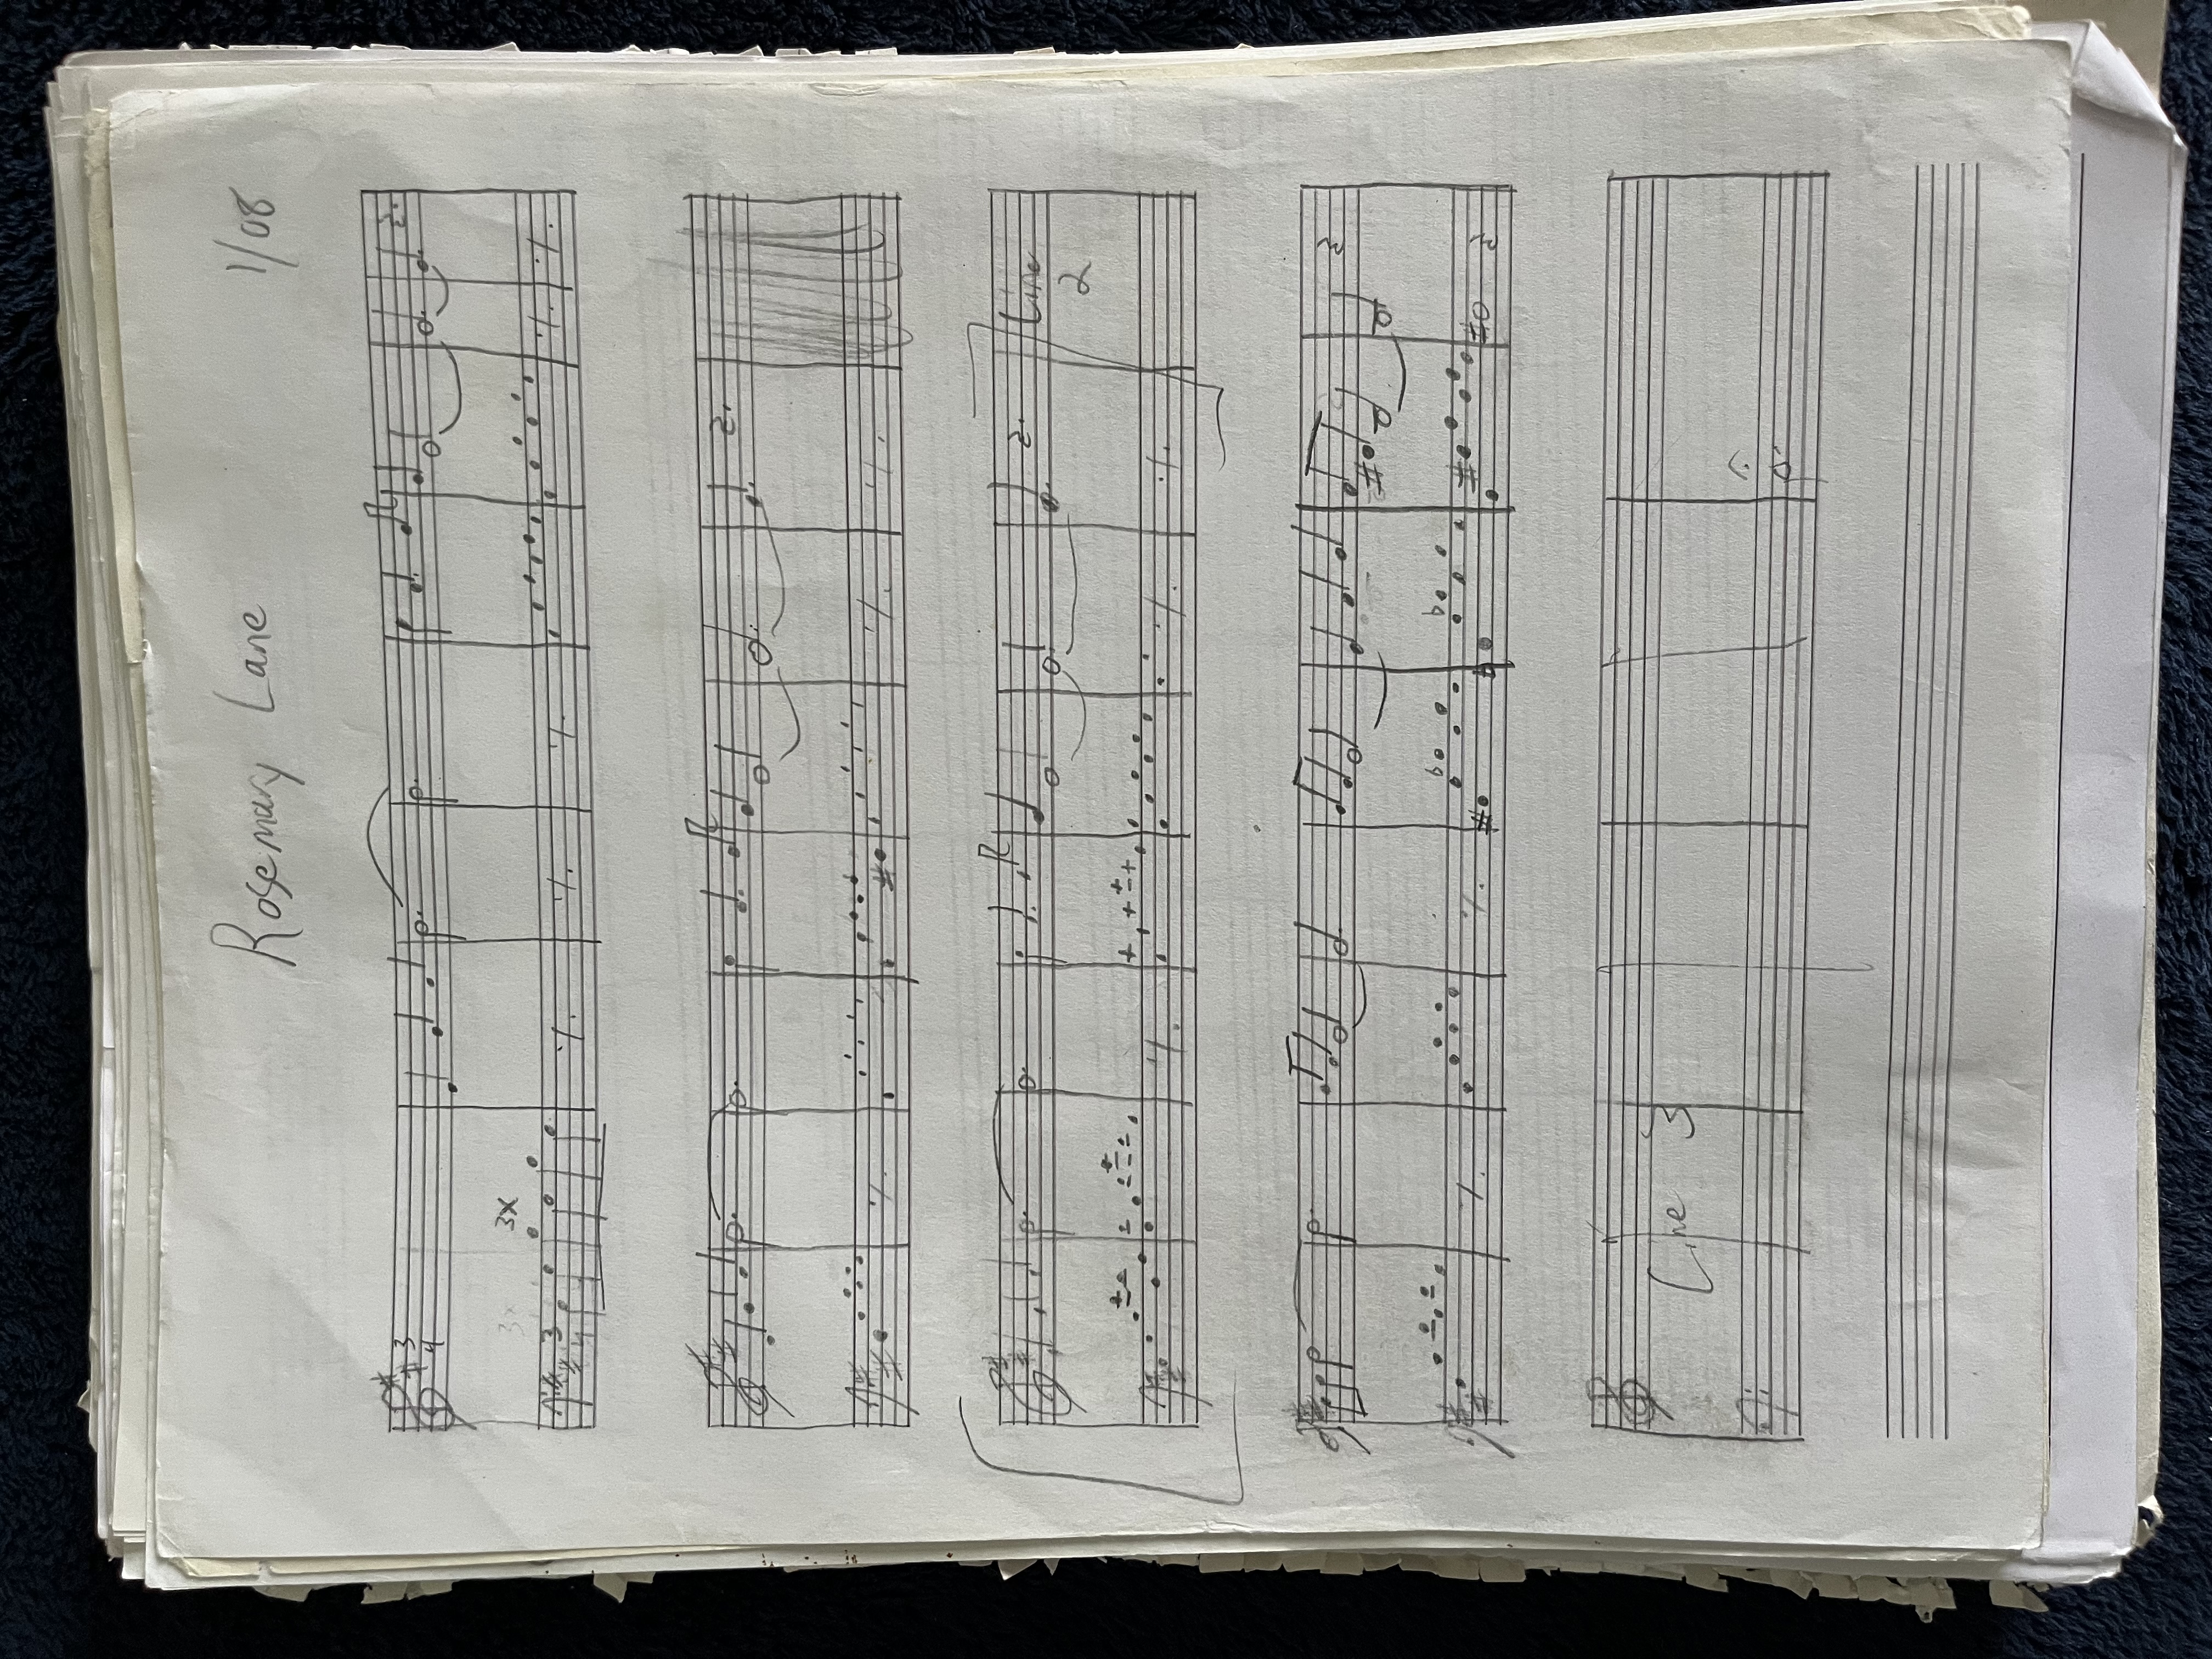 Rosemary Lane
1/08
3
4
3x
3x
3
4
Line
2
Line 3